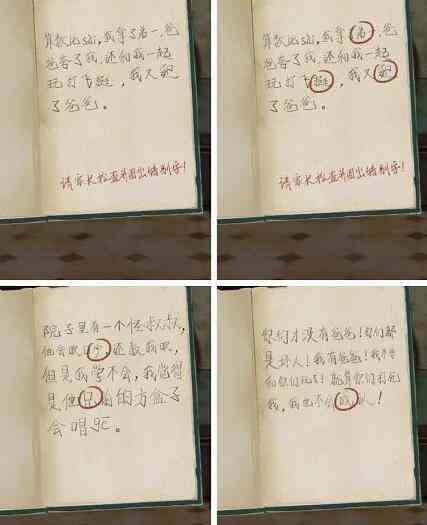 算数比sài,我拿了弟一,爸
爸夸了我,还和我一起
玩打飞挺,我又
了爸爸。
请家长检查并圈出错别字!
算数比sài,我拿了弟一,爸
爸夸了我,还和我一起
玩打飞挺,我又
了爸爸。
请家长检查并圈出错别字!
院子里有一个怪叔叔,
他会吹口,还教我吹,
但是我学不会,我觉得
是他的方盒子
会唱gē。
你们才没有爸爸!你们都
是坏人!我有爸爸!我不要
和你们玩了!就算你们打爸
我,我也不会人!